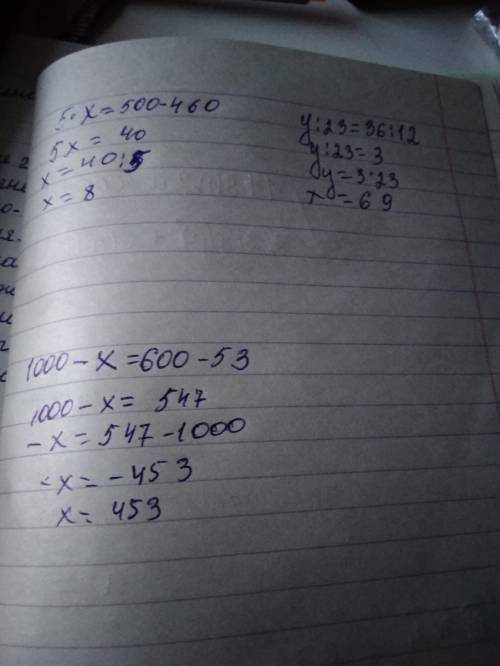 5·x=500-460
5x= 40
x=40:5
x= 8
y:23=36:12
y:23=3
y=3·23
x=69
1000-x=600-53
1000-x= 547
-x=547-1000
-x=-453
x=453